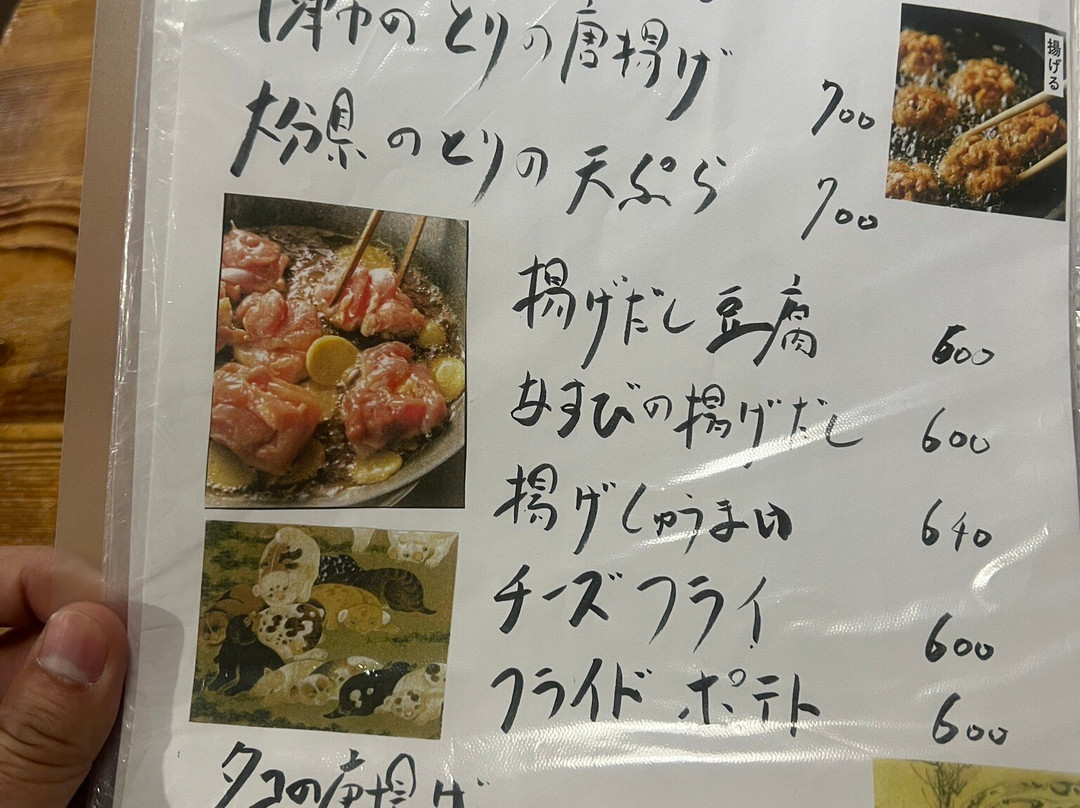 中津市のとりの唐揚げ 700
揚げる
大分県のとりの天ぷら 700
揚げだし豆腐 600
なすびの揚げだし 600
揚げしゅうまい 640
チーズフライ 600
フライドポテト 600
タコの唐揚げ